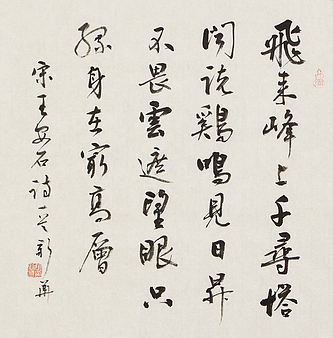 飛来峰上千尋塔
聞說鷄鳴見日昇
不畏雲遮望眼只
緣身在最高層
宋王安石詩一首